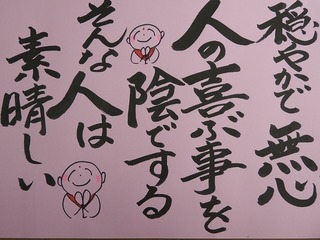 穏やかで無心
人の喜ぶ事を
陰でする
そんな人は
素晴しい